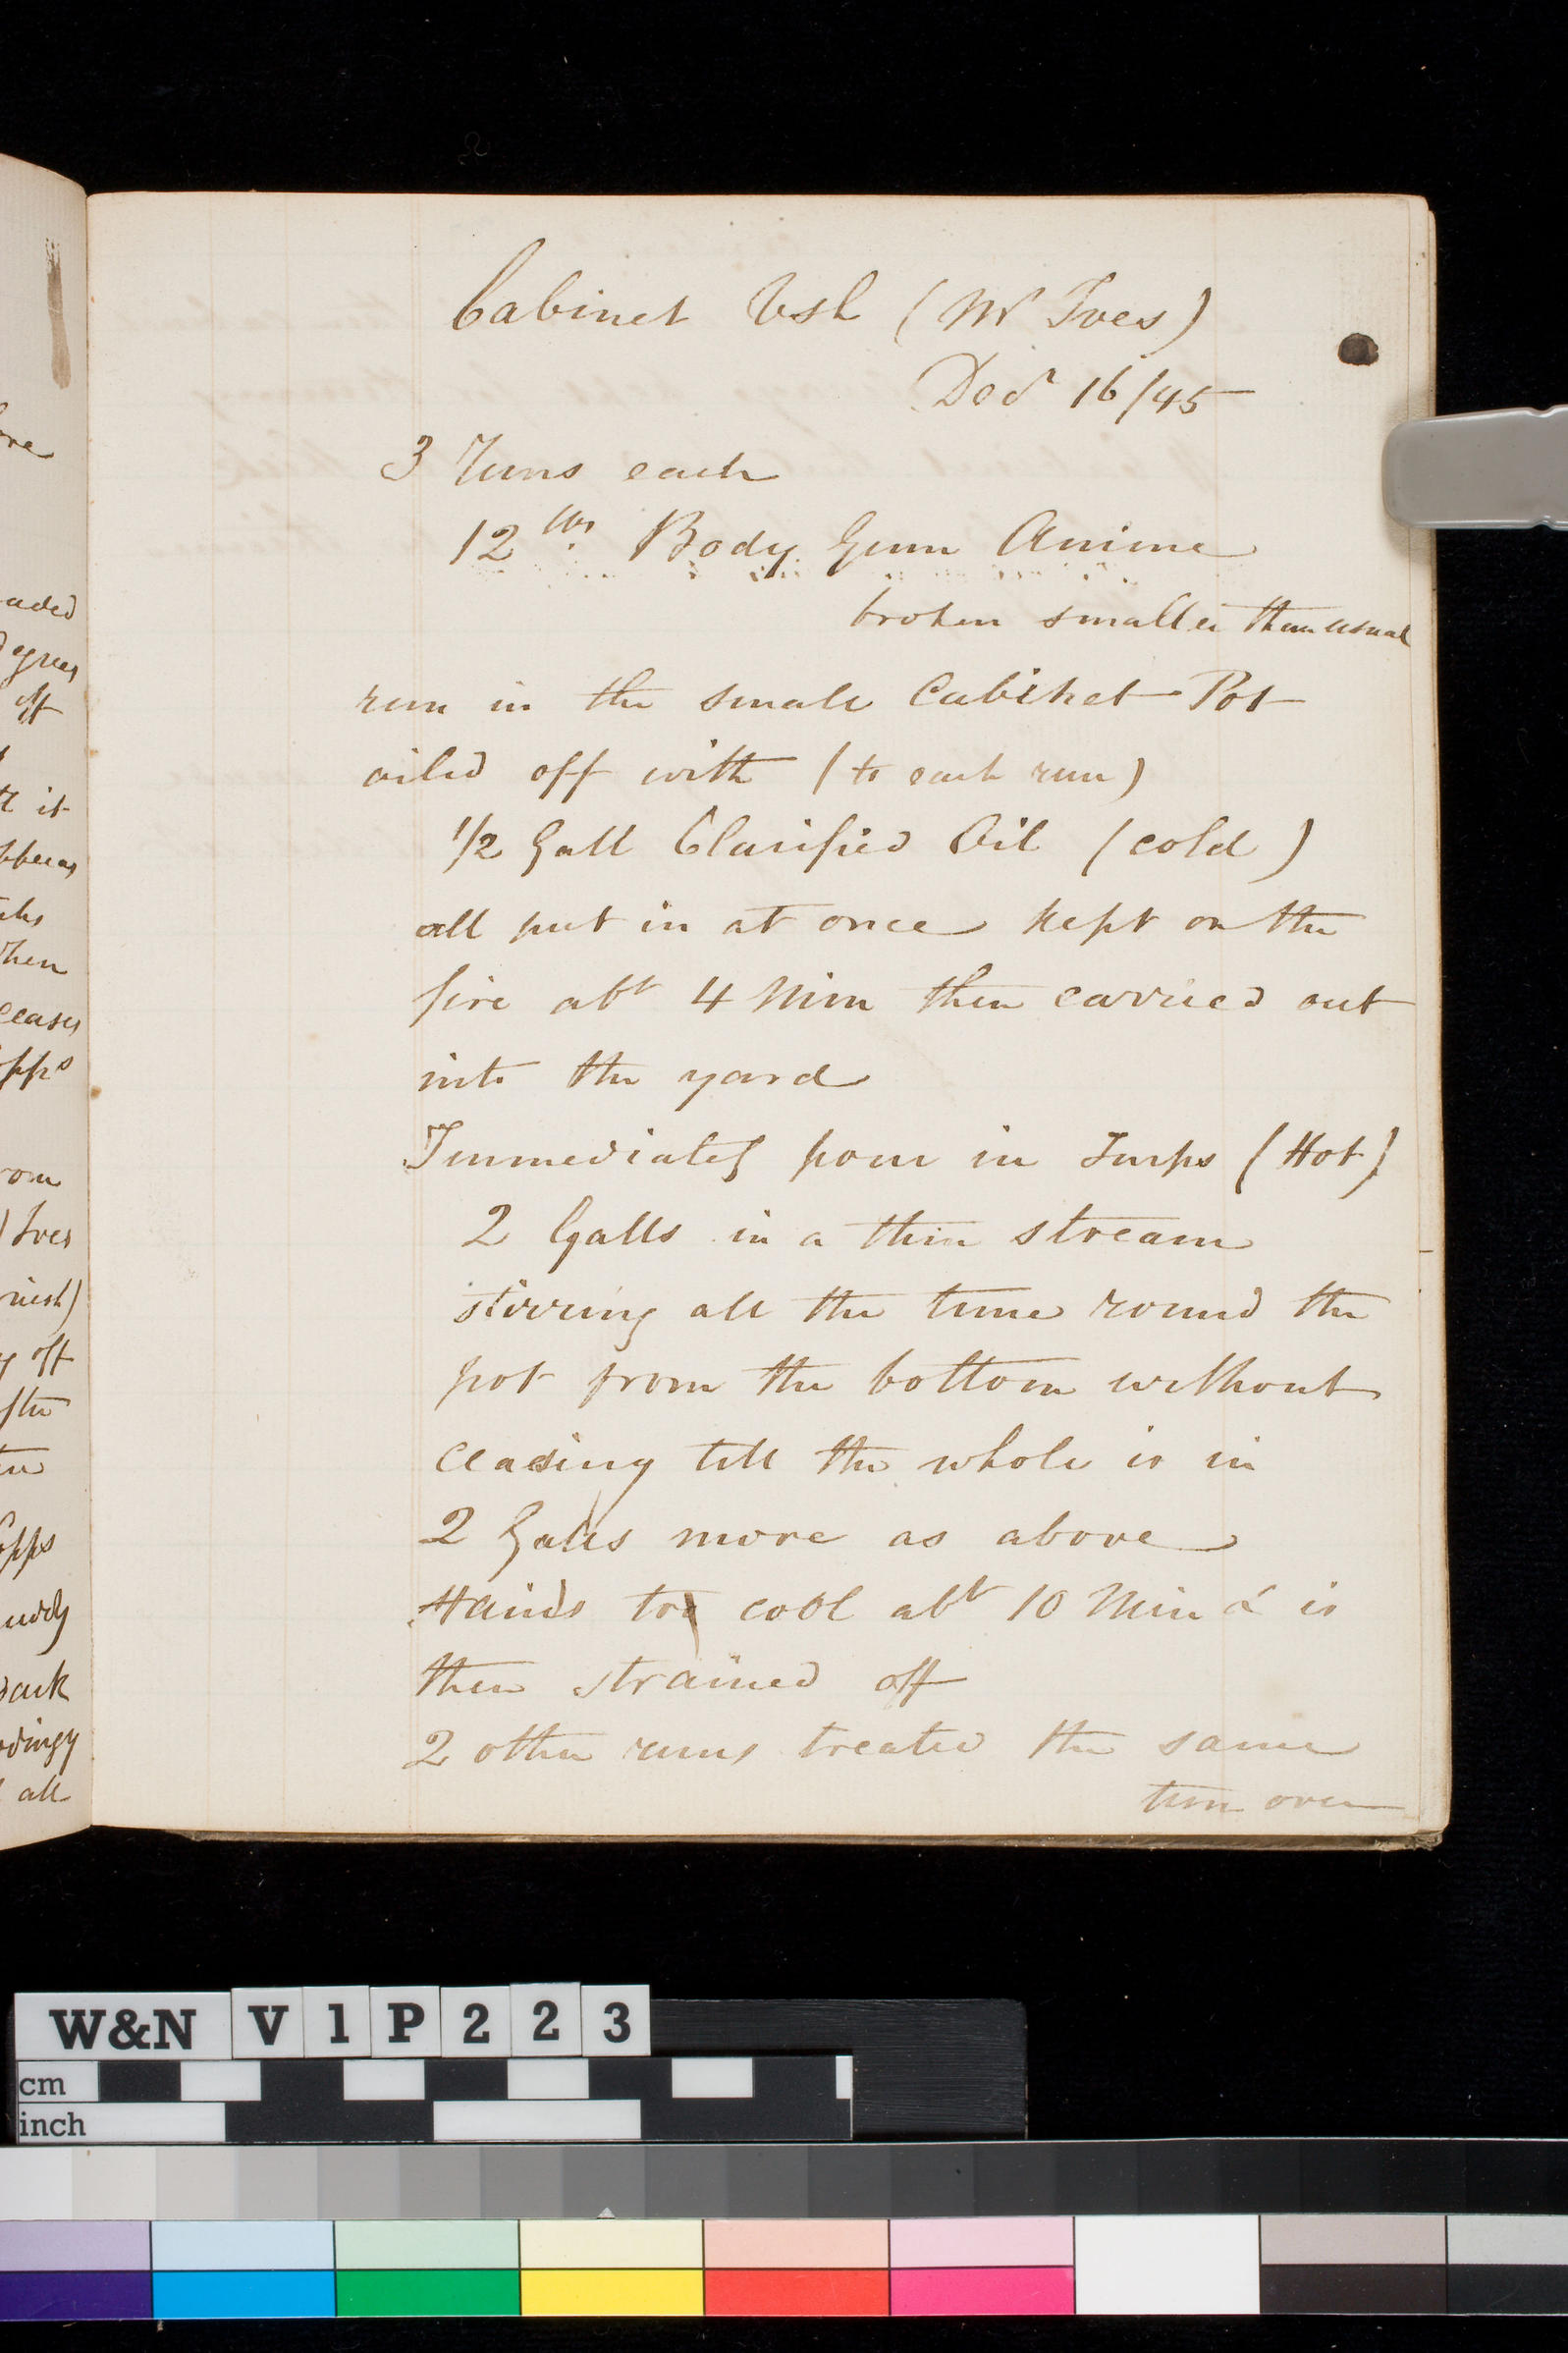 Cabinet Vsh (Mr Ives)
Decr 16/45
3 Runs each
12 lbs Body Gum Anime
broken smaller than usual
run in the small Cabinet Pot
oiled off with (to each run)
1/2 Gall Clarified Oil (cold)
all put in at once kept on the
fire abt 4 Min then carried out
into the yard
Immediately pour in Turps (Hot)
2 Galls in a thin stream
stirring all the time round the
pot from the bottom without
ceasing till the whole is in
2 Galls more as above
Stands to cool abt 10 Min & is
then strained off
2 other runs treated the same
turn over
aded
egrees
off
it
hen
ceases
opps
rom
Ives
nish)
off
opps
dark
all
W&N V 1 P 2 2 3
cm
inch